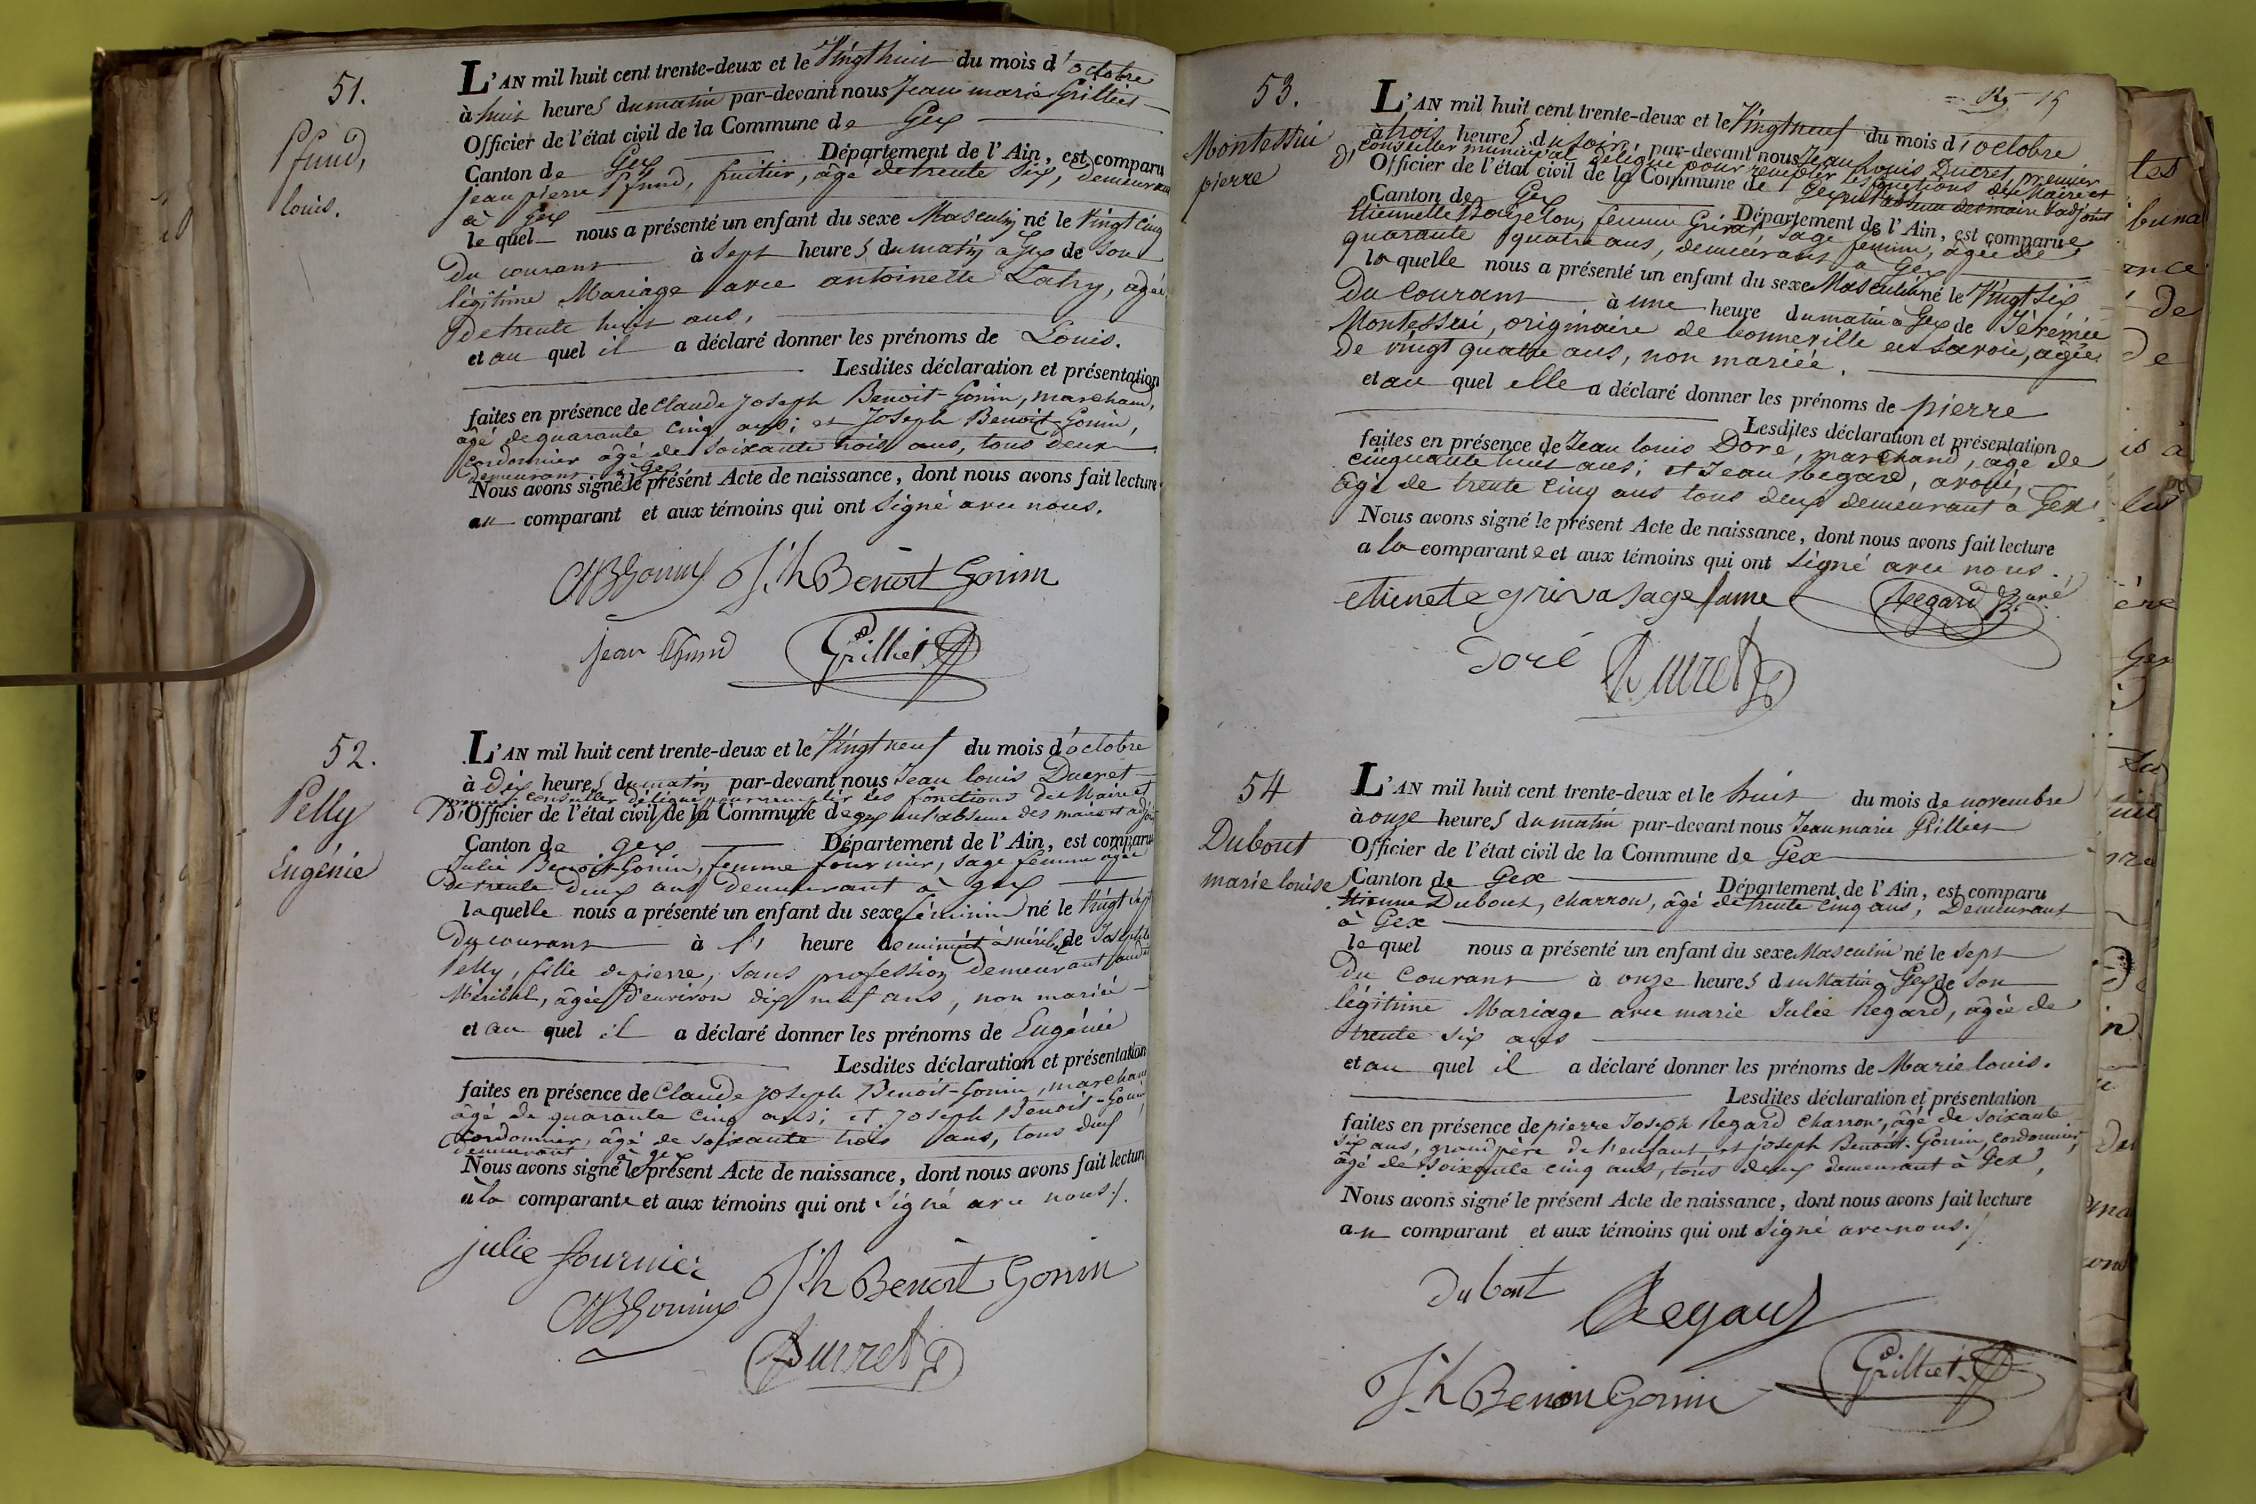 51.
Pfund,
louis.
L'AN mil huit cent trente-deux et le Vingt huit du mois d'octobre
à huit heures du matin par-devant nous Jean marie Grilliet
Officier de l'état civil de la Commune de Gex
Canton de Gex Département de l'Ain, est comparu
jean pierre Pfund, fruitier, âgé de trente six, demeurant
à Gex
le quel nous a présenté un enfant du sexe Masculin né le Vingt cinq
du courant à sept heures du matin à Gex de son
légitime Mariage avec antoinette Latry, agée
de trente huit ans,
et au quel il a déclaré donner les prénoms de Louis.
Lesdites déclaration et présentation
faites en présence de Claude Joseph Benoit-Gonin, marchand,
âgé de quarante cinq ans; et Joseph Benoit-Gonin,
cordonnier âgé de soixante trois ans, tous deux
demeurant à Gex
Nous avons signé le présent Acte de naissance, dont nous avons fait lecture
au comparant et aux témoins qui ont signé avec nous.
Jh Benoit Gonin
jean Pfund Grilliet
52.
Pelly
Eugénie
L'AN mil huit cent trente-deux et le Vingt neuf du mois d'octobre
à dix heures du matin par-devant nous Jean louis Ducret
premier conseiller délégué pour remplir les fonctions de Maire et
d'Officier de l'état civil de la Commune de gex en l'absence des maire et adjoint
Canton de gex Département de l'Ain, est comparu
Julie Benoit-Gonin, femme fournier, sage femme agée
de trente deux ans demeurant à gex
laquelle nous a présenté un enfant du sexe féminin né le Vingt sept
du courant à l' heure de minuit à méribel de Josephte
Pelly, fille de pierre, sans profession demeurant audit
Méribel, âgée d'environ dix neuf ans, non mariée
et au quel il a déclaré donner les prénoms de Eugénie
Lesdites déclaration et présentation
faites en présence de Claude Joseph Benoit-Gonin, marchand
âgé de quarante cinq ans; et Joseph Benoit-Gonin
Cordonnier, âgé de soixante trois ans, tous deux
demeurant à gex
Nous avons signé le présent Acte de naissance, dont nous avons fait lecture
à la comparante et aux témoins qui ont signé avec nous/.
julie fournier
Jh Benoit Gonin
Ducret
53.
Montessui
pierre
L'AN mil huit cent trente-deux et le Vingt neuf du mois d'octobre
à trois heures du soir, par-devant nous Jean Louis Ducret, premier
conseiller municipal délégué pour remplir les fonctions de Maire et
d'Officier de l'état civil de la Commune de Gex en l'absence des maire & adjoint
Canton de Gex Département de l'Ain, est comparue
Etiennette femme Grivat, sage femme, agée de
quarante quatre ans, demeurant à Gex
la quelle nous a présenté un enfant du sexe Masculin né le Vingt six
du courant à une heure du matin à Gex de Jérémie
Montessui, originaire de bonneville en savoie, agée
de vingt quatre ans, non mariée.
et au quel elle a déclaré donner les prénoms de pierre
Lesdites déclaration et présentation
faites en présence de Jean louis Doré, marchand, âgé de
cinquante huit ans; et Jean Regard, avoué,
âgé de trente cinq ans tous deux demeurant à Gex.
Nous avons signé le présent Acte de naissance, dont nous avons fait lecture
a la comparante et aux témoins qui ont signé avec nous.
etienete griva sage fame Regard
Doré Ducret
54
Dubout
marie louise
L'AN mil huit cent trente-deux et le huit du mois de novembre
à onze heures du matin par-devant nous Jean marie Grilliet
Officier de l'état civil de la Commune de Gex
Canton de Gex Département de l'Ain, est comparu
Etienne Dubout, charron, âgé de trente cinq ans, demeurant
à Gex
le quel nous a présenté un enfant du sexe Masculin né le sept
du courant à onze heures du Matin à Gex de son
légitime Mariage avec marie Julie Regard, âgée de
trente six ans
et au quel il a déclaré donner les prénoms de Marie louis.
Lesdites déclaration et présentation
faites en présence de pierre Joseph Regard charron, âgé de soixante
six ans, grand père de l'enfant, et joseph Benoit-Gonin, cordonnier,
âgé de soixante cinq ans, tous deux demeurant à Gex,
Nous avons signé le présent Acte de naissance, dont nous avons fait lecture
au comparant et aux témoins qui ont signé avec nous./
Dubout
Regard
Jh Benoit Gonin Grilliet